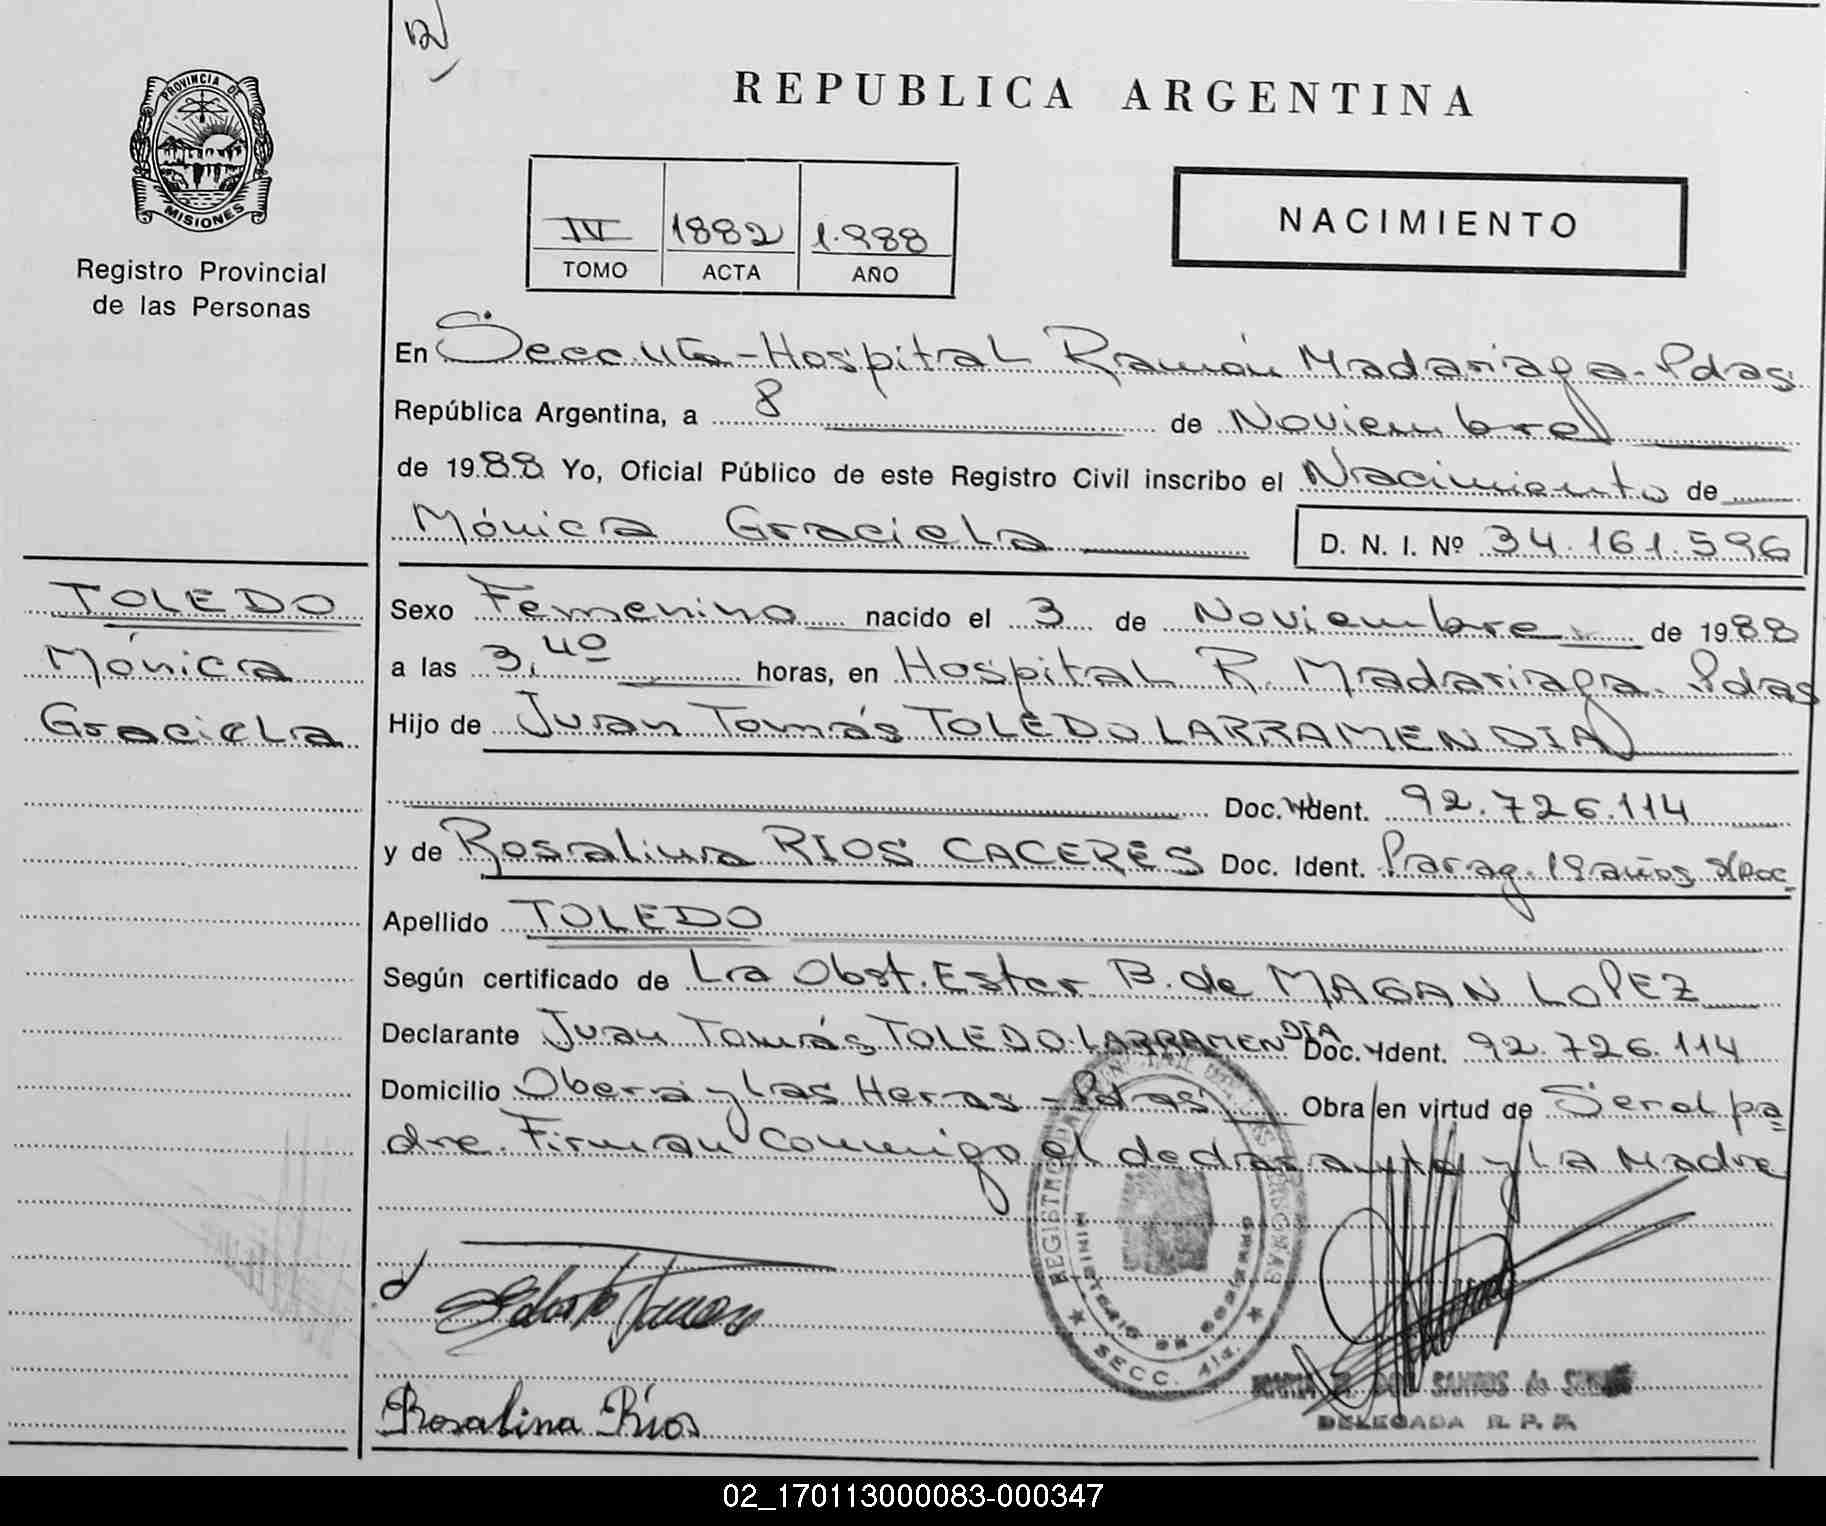 12
REPUBLICA ARGENTINA
PROVINCIA DE
MISIONES
Registro Provincial
de las Personas
IV 1882 1.988
TOMO ACTA AÑO
NACIMIENTO
En Secc 4ta - Hospital Ramón Madariaga - Pdas
República Argentina, a 8 de Noviembre
de 1988 Yo, Oficial Público de este Registro Civil inscribo el Nacimiento de
Mónica Graciela D. N. I. Nº 34.161.596
TOLEDO
Mónica
Graciela
Sexo Femenino nacido el 3 de Noviembre de 1988
a las 3,40 horas, en Hospital R. Madariaga - Pdas
Hijo de Juan Tomás TOLEDO LARRAMENDIA
Doc. Ident. 92.726.114
y de Rosalina RIOS CACERES Doc. Ident. Parag. 19 años s/Doc.
Apellido TOLEDO
Según certificado de La Obst. Ester B. de MAGAN LOPEZ
Declarante Juan Tomás TOLEDO LARRAMENDIA Doc. Ident. 92.726.114
Domicilio Obera y Las Heras - Pdas Obra en virtud de Ser el pa
dre. Firman conmigo el declarante y la Madre
MINISTERIO DE GOBIERNO
SECC. 4ta.
Rosalina Ríos
DOS SANTOS de
DELEGADA R. P. P.
02_170113000083-000347